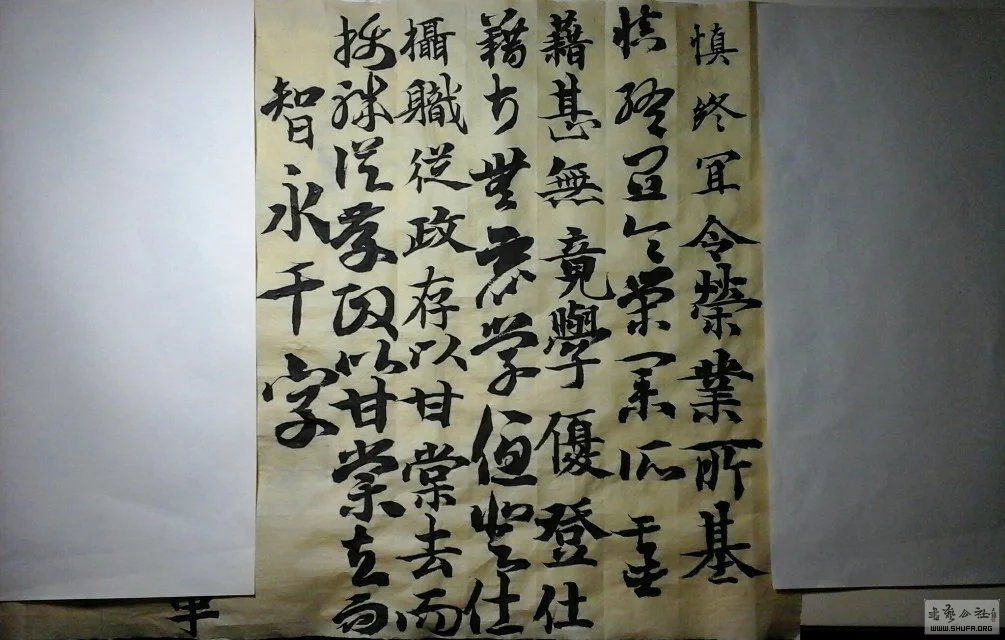 慎终宜令榮業所基
慎终宜令榮業所基
藉甚無竟學優登仕
藉甚無竟学優登仕
攝職從政存以甘棠去而
攝職從政存以甘棠去而
智永千字
WWW.SHUFA.ORG